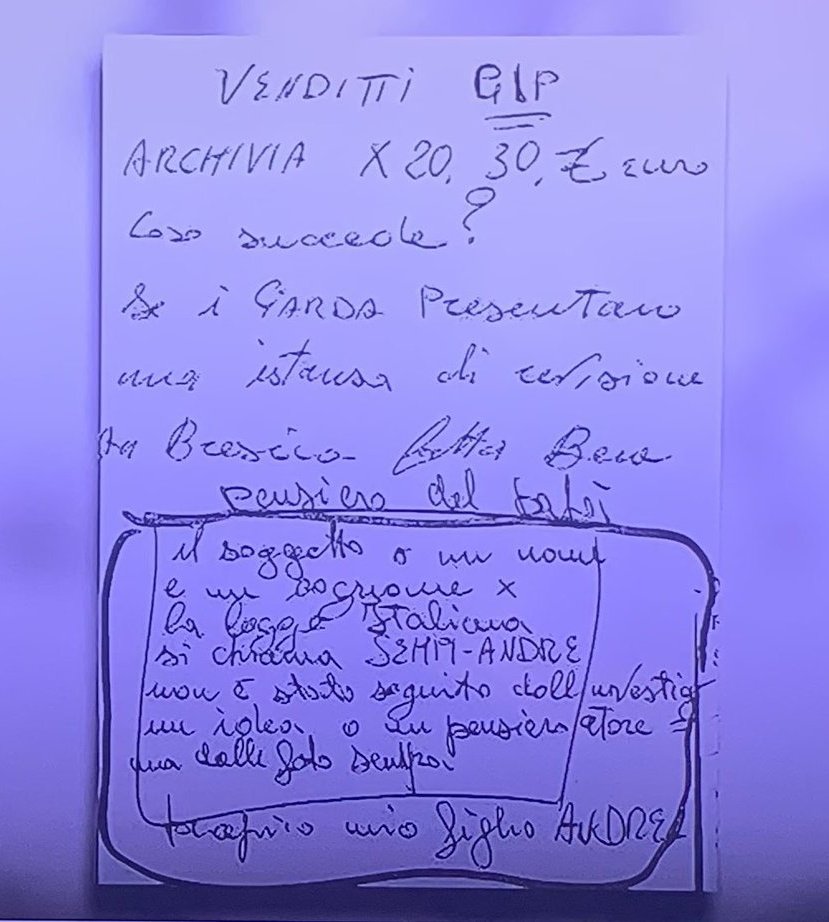 VENDITTI GIP
ARCHIVIA X 20. 30. € euro
Cosa succede?
Se i GARDA Presentano
una istansa di revisione
Ha Brescia fatta Bene
pensiero del
il soggetto a un nome
e un cognome x
la legge Italiana
si chiama SEMPI-ANDRE
non è stato seguito dall'investig
un idea o un pensiero atore =
ma dalle foto sempra
mio figlio ANDREA